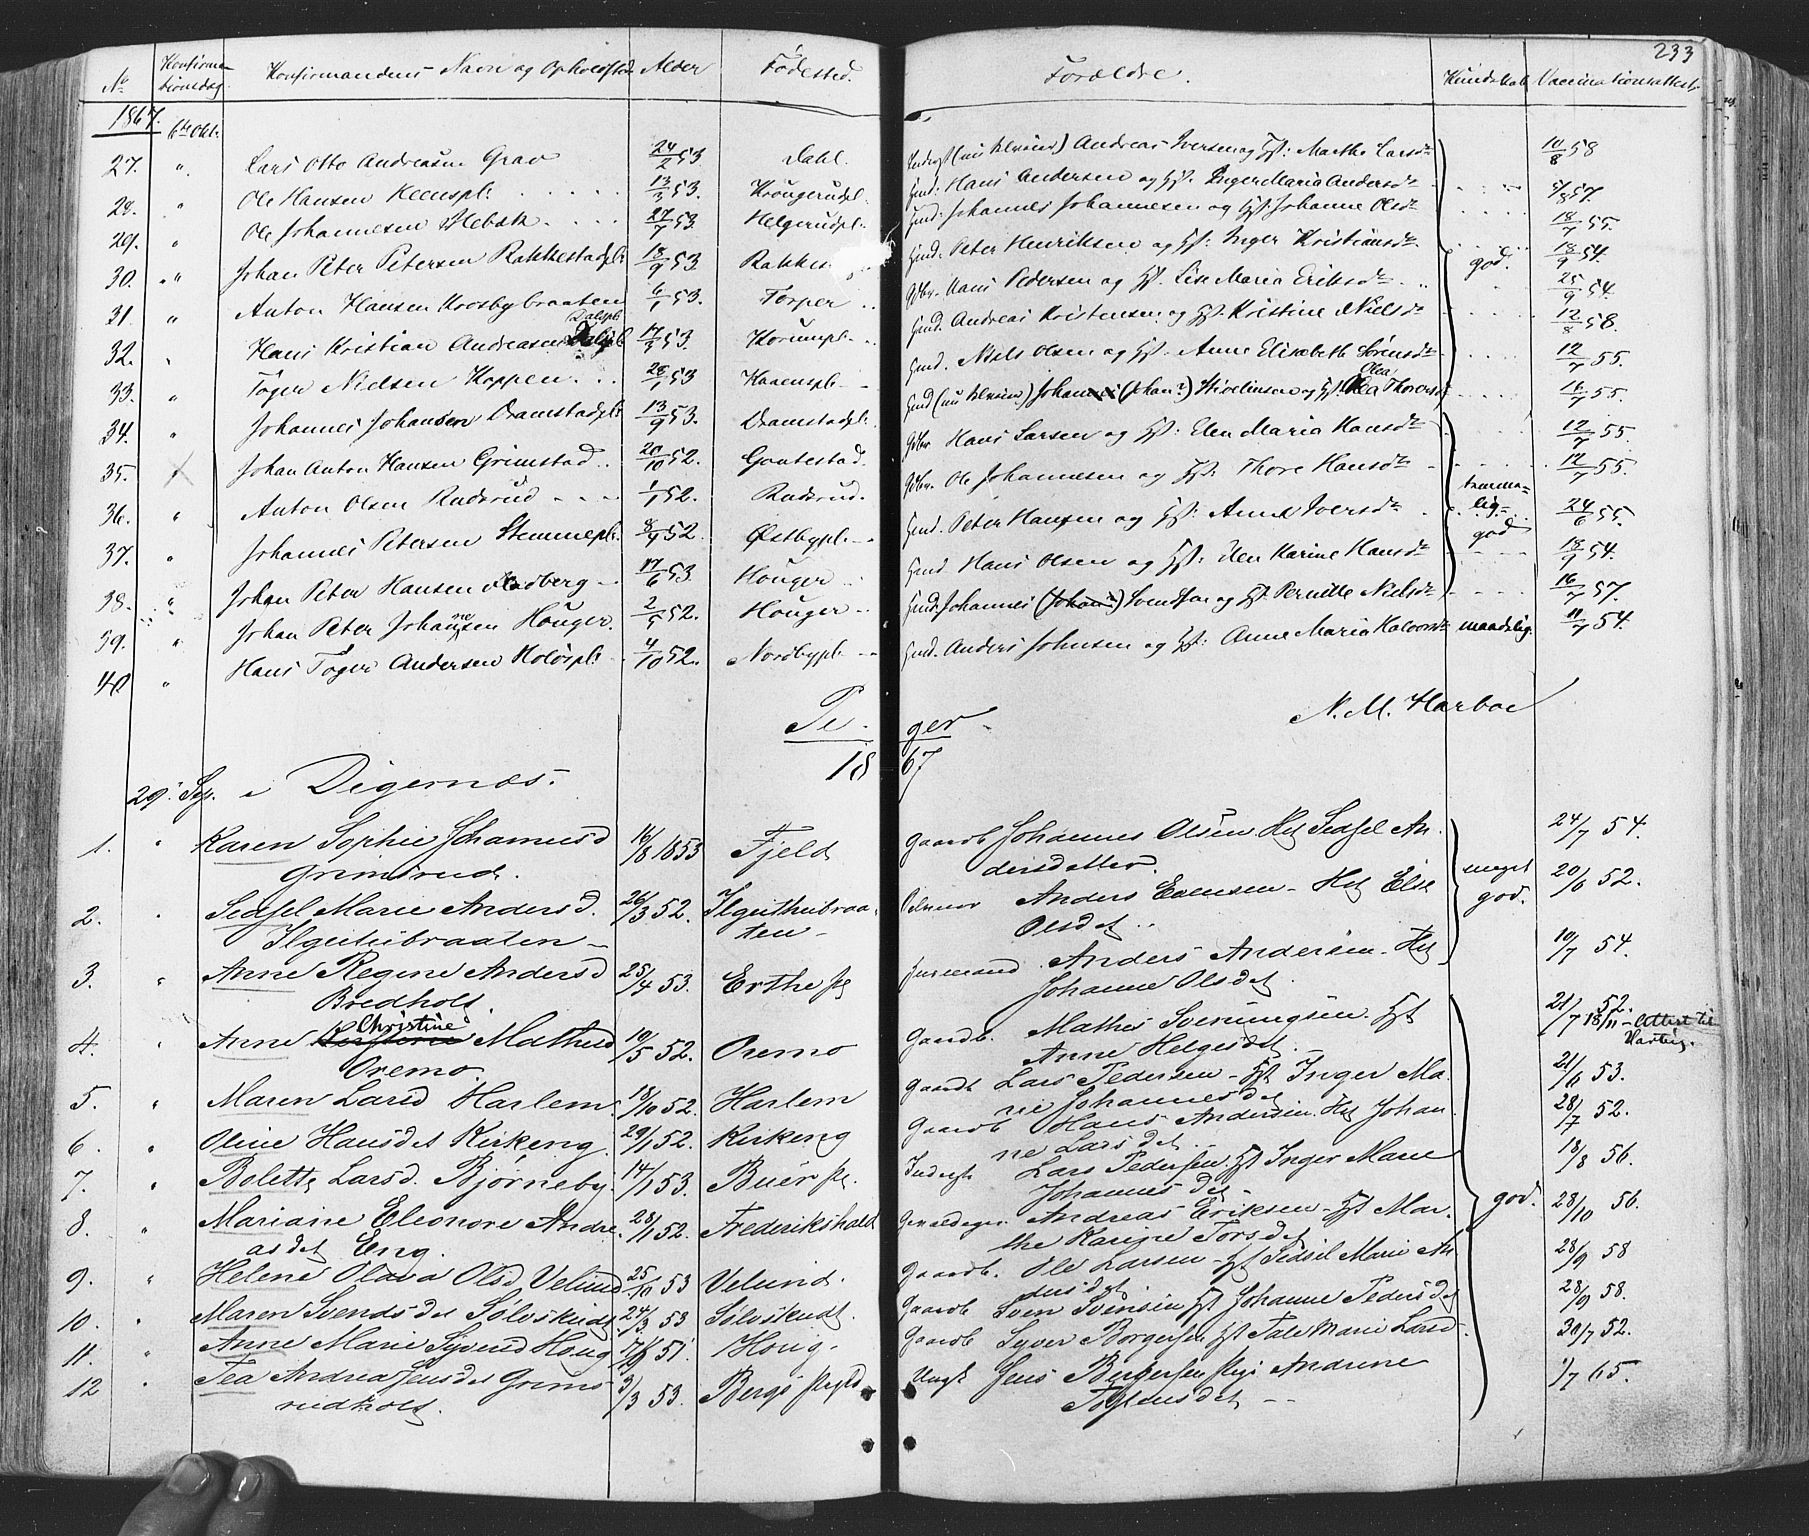 233
No Konfirmationsdag. Konfirmandens Navn og Opholdssted Alder Fødested. Forældre. Kundskab Vaccinationsattest
1867. 6te Okt.
27. " Lars Otto Andreasen Grav 24/2 53 Dahl. Inderst (nu Selveier) Andreas Iversen og Hst: Marthe Larsdr 10/8 58
28. " Ole Hansen 13/3 53. Krougerudpl. Hmd. Hans Andersen og Hst. Inger Maria Andersdr 5/8 57.
29. " Ole Johannesen Hebæk 27/7 53. Helgerudspl. Hmd. Johannes Johannesen og Hst Johanne Olsdr 18/7 55.
30. " Johan Peter Petersen Rakkestadpl. 18/9 53 Hmd. Peter Henriksen og Hst: Inger Kristiansdr god. 18/9 54.
31. " Anton Hansen Krosbybraaten 6/1 53. Torper Gdbr. Hans Pedersen og Hst. Lise Maria Eriksdr 25/9 54.
32. " Hans Kristian Andreasen Dalspl 17/3 53. Korumpl. Hmd. Andreas Kristensen og Hst. Kristine Nielsdr 12/8 58.
33. " Toger Nielsen Koppen 28/1 53 Hmd. Niels Olsen og Hst. Anne Elisabeth Sörensdr 12/7 55.
34. " Johannes Johansen Dramstadpl. 13/9 53. Dramstadpl. Hmd (nu Selveier) (Johan?) og Hst. Olea Thorersdr 16/7 55.
35. Johan Anton Hansen Grimstad 20/10 52. Goutestad Gdbr Hans Larsen og Hst: Elen Maria Hansdr 12/7 55.
36. " Anton Olsen Rudsrud 1/1 52. Rudsrud. Gdbr. Ole Johannesen og Hst: Thore Hansdr temmelig god 12/7 55.
37. " Johannes Petersen Stemmepl. 8/9 52. Østbypl. Hmd. Peter Hansen og Hst: Anne Iversdr 24/6 55.
38. " Johan Peter Hansen Hadberg 17/6 53. Houger Hmd Hans Olsen og Hst: Elen Karine Hansdr 18/9 54.
39. " Johan Peter Johannesen Houger. 2/5 52. Houger Hmd. Johannes (Johan?) Svendsen og Hst Pernille Nielsdr 16/7 57.
40 " Hans Toger Andersen Holöspl. 4/10 52. Nordbypl Hmd. Anders Johnsen og Hst: Anne Maria Halvorsdr maadelig. 11/7 54.
N. M. Harboe
Piger
1867
29. Sep. i Digernæs.
1. " Karen Sophie Johannesd Grimsrud. 16/8 1853 Fjeld Gaardb Johannes Olsen Hst Sedsel Andersdatter. meget god. 24/7 54.
2. " Sedsel Marie Andersd. Ilgutubraaten 26/3 52. Ilguthubraaten Anders Evensen - Hst Else Olsdet 20/6 52.
3. " Anne Regine Andersd Bredholt. 25/4 53. Erthe pl Husmand. Anders Andersen - Hst Johanne Olsdet. 10/7 54.
4. " Anne Christine Mathisd Oremo. 10/5 52. Oremo Gaardb. Mathis Svenungsen. Hst Anne Helgesdet. 21/7 52. 18/11 - Attest til Varteig.
5. " Maren Larsd Harlem 18/10 52. Harlem Gaardb Lars Pedersen - Hst Inger Marie Johannesdet 21/6 53.
6. " Oline Hansdet Kirkeng 29/1 52. Kirkeng Gaardb Hans Andersen. Hst Johanne Larsdet 28/7 52.
7. " Bolette Larsd. Bjørneby 14/1 53. Buer pl. Inderst Lars Pedersen. Hst Inger Marie Johannesdet 18/8 56.
8. " Mariane Eleonore Andreasdet Eng. 28/1 52. Frederikshald Andreas Eriksen - Hst Marthe Karine Torsdet god. 28/10 56.
9. " Helene Olava Olsd Velund 25/10 53 Velund. Gaardb. Ole Larsen - Hst Sedsel Marie Andersdet. 28/9 58
10. " Maren Svendsdet Sølvskudt 24/3 53 Sølvskudt Gaardb Sven Svensen Hst Johanne Pedersdet 28/9 58.
11. " Anne Marie Syversd Houg 51. Houg. Gaardb Syver Borgersen Hst Tale Marie Larsd. 30/7 52.
12 " Tea Andrea Jensdet Grimsrudholt. 3/3 53. Bergs Ungk Jens Birgersen Pige Andrine 1/7 65.